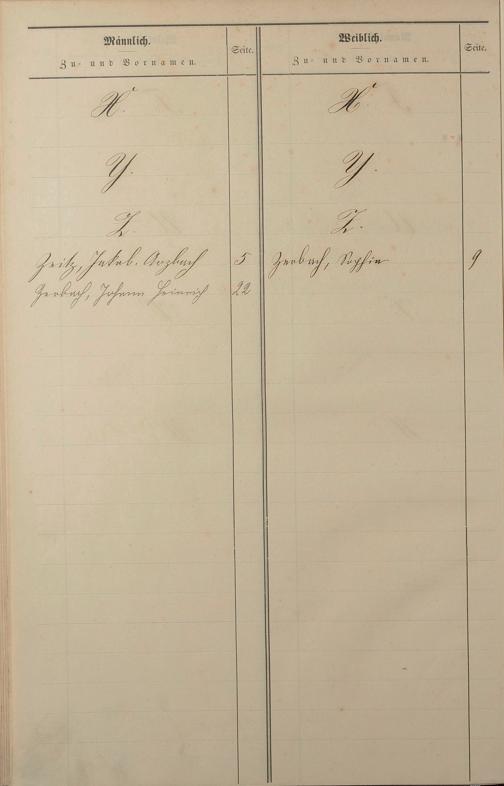 Männlich.
Zu- und Vornamen.
Seite.
X.
Y.
Z.
Zeitz, Jakob. Arzbach 5
Zerbach, Johann Heinrich 22
Weiblich.
Zu- und Vornamen.
Seite.
X.
Y.
Z.
Zerbach, Sophie 9